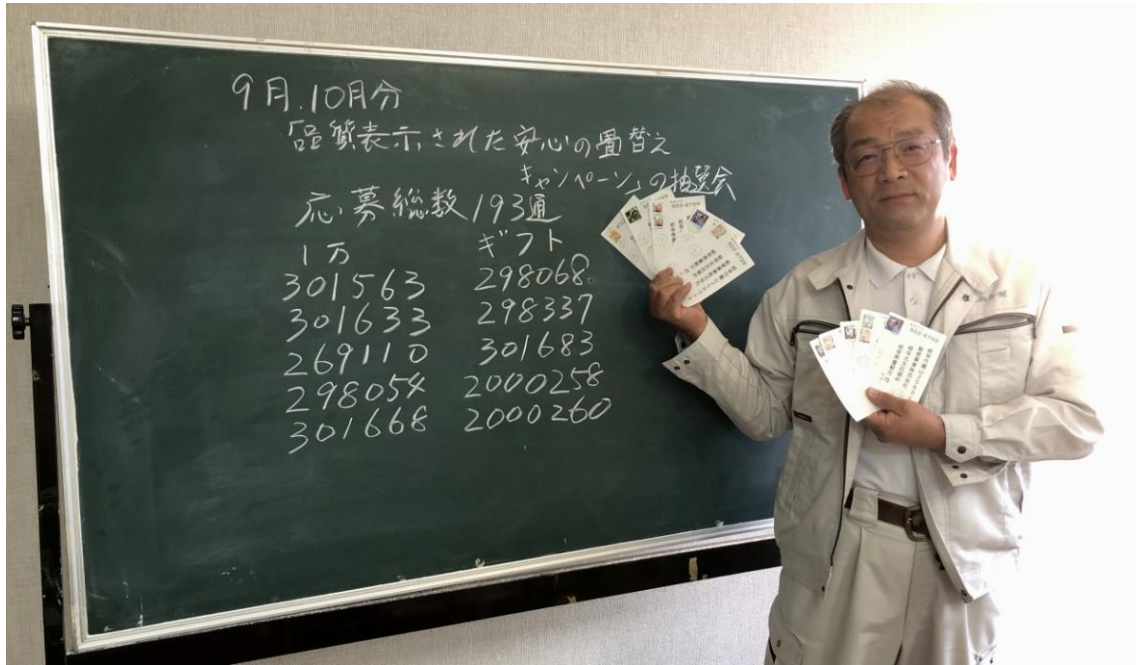 9月.10月分
「品質表示された安心の畳替え
キャンペーン」の抽選会
応募総数193通
1万 ギフト
301563 298068
301633 298337
269110 301683
298054 2000258
301668 2000260